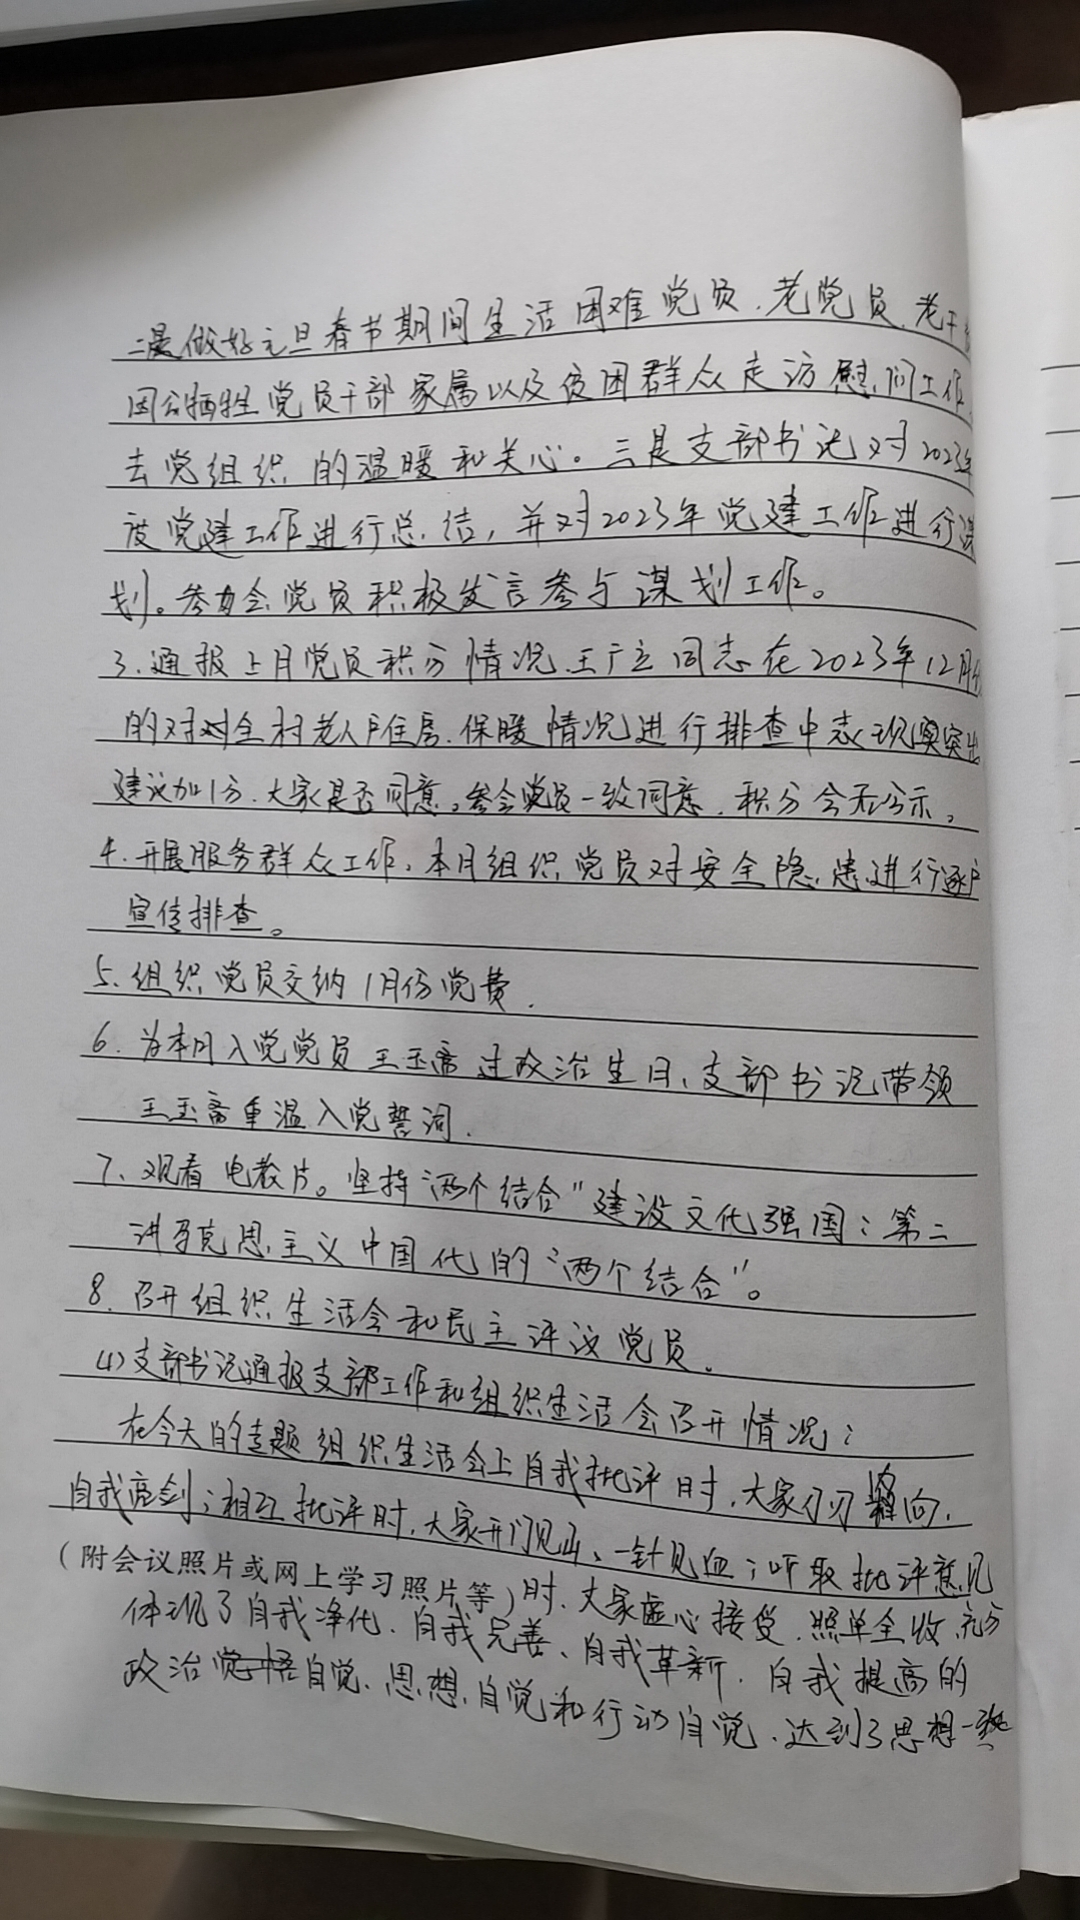 二是做好元旦春节期间生活困难党员、老党员、老干
因公牺牲党员干部家属以及贫困群众走访慰问工作
去党组织的温暖和关心。三是支部书记对2023年
度党建工作进行总结，并对2023年党建工作进行谋
划。参加会党员积极发言参与谋划工作。
3.通报上月党员积分情况，王广立同志在2023年12月份
的对对全村老人户住房、保暖情况进行排查中表现突出
建议加1分，大家是否同意。参会党员一致同意，积分会后公示。
4.开展服务群众工作，本月组织党员对安全隐患进行逐户
宣传排查。
5.组织党员交纳1月份党费.
6.为本月入党党员王玉斋过政治生日，支部书记带领
王玉斋重温入党誓词.
7、观看电教片。坚持“两个结合”建设文化强国：第二
讲马克思主义中国化的“两个结合”。
8.召开组织生活会和民主评议党员。
(1)支部书记通报支部工作和组织生活会召开情况：
在今天的专题组织生活会上自我批评时，大家刀刃向
自我亮剑；相互批评时，大家开门见山、一针见血；听取批评意见
（附会议照片或网上学习照片等）时、大家虚心接受、照单全收，充分
体现了自我净化、自我完善、自我革新、自我提高的
政治觉悟自觉、思想自觉和行动自觉、达到了思想一致